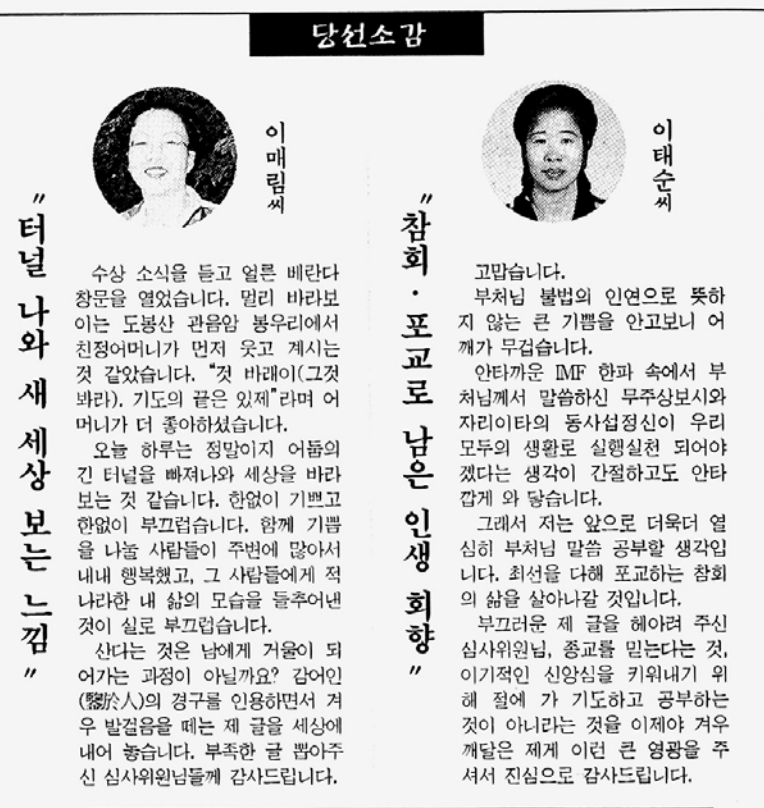 당선소감
이매림씨
"터널 나와 새 세상 보는 느낌"
수상 소식을 듣고 얼른 베란다
창문을 열었습니다. 멀리 바라보
이는 도봉산 관음암 봉우리에서
친정어머니가 먼저 웃고 계시는
것 같았습니다. "것 바래이(그것
봐라). 기도의 끝은 있제"라며 어
머니가 더 좋아하셨습니다.
오늘 하루는 정말이지 어둠의
긴 터널을 빠져나와 세상을 바라
보는 것 같습니다. 한없이 기쁘고
한없이 부끄럽습니다. 함께 기쁨
을 나눌 사람들이 주변에 많아서
내내 행복했고, 그 사람들에게 적
나라한 내 삶의 모습을 들추어낸
것이 실로 부끄럽습니다.
산다는 것은 남에게 거울이 되
어가는 과정이 아닐까요? 감어인
(鑒於人)의 경구를 인용하면서 겨
우 발걸음을 떼는 제 글을 세상에
내어 놓습니다. 부족한 글 뽑아주
신 심사위원님들께 감사드립니다.
이태순씨
"참회·포교로 남은 인생 회향"
고맙습니다.
부처님 불법의 인연으로 뜻하
지 않는 큰 기쁨을 안고보니 어
깨가 무겁습니다.
안타까운 IMF 한파 속에서 부
처님께서 말씀하신 무주상보시와
자리이타의 동사섭정신이 우리
모두의 생활로 실행실천 되어야
겠다는 생각이 간절하고도 안타
깝게 와 닿습니다.
그래서 저는 앞으로 더욱더 열
심히 부처님 말씀 공부할 생각입
니다. 최선을 다해 포교하는 참회
의 삶을 살아나갈 것입니다.
부끄러운 제 글을 헤아려 주신
심사위원님, 종교를 믿는다는 것,
이기적인 신앙심을 키워내기 위
해 절에 가 기도하고 공부하는
것이 아니라는 것을 이제야 겨우
깨달은 제게 이런 큰 영광을 주
셔서 진심으로 감사드립니다.